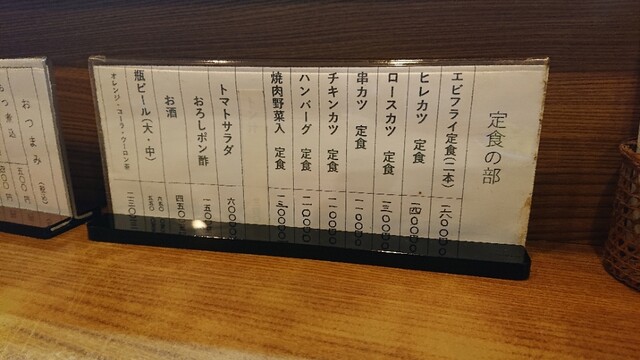 定食の部
エビフライ定食(二本) 二六〇〇
ヒレカツ 定食 一四〇〇
ロースカツ 定食 一三〇〇
串カツ 定食 一一〇〇
チキンカツ 定食 一〇〇〇
ハンバーグ 定食 一〇〇〇
焼肉野菜入 定食
トマトサラダ 六〇〇
おろしポン酢 一五〇
お酒 四五〇
瓶ビール(大・中) 六五〇 五五〇
オレンジ・コーラ・ウーロン茶 二三〇
おつまみ 五〇〇円
もつ煮込